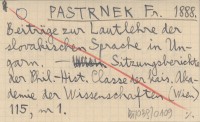 PASTRNEK Fr. 1888.
Beiträge zur Lautlehre der
slovakischen Sprache in Un-
garn. — Sitzungsberichte
der Phil-Hist. Classe der Kais. Aka-
demie der Wissenschaften (Wien)
115, n 1.